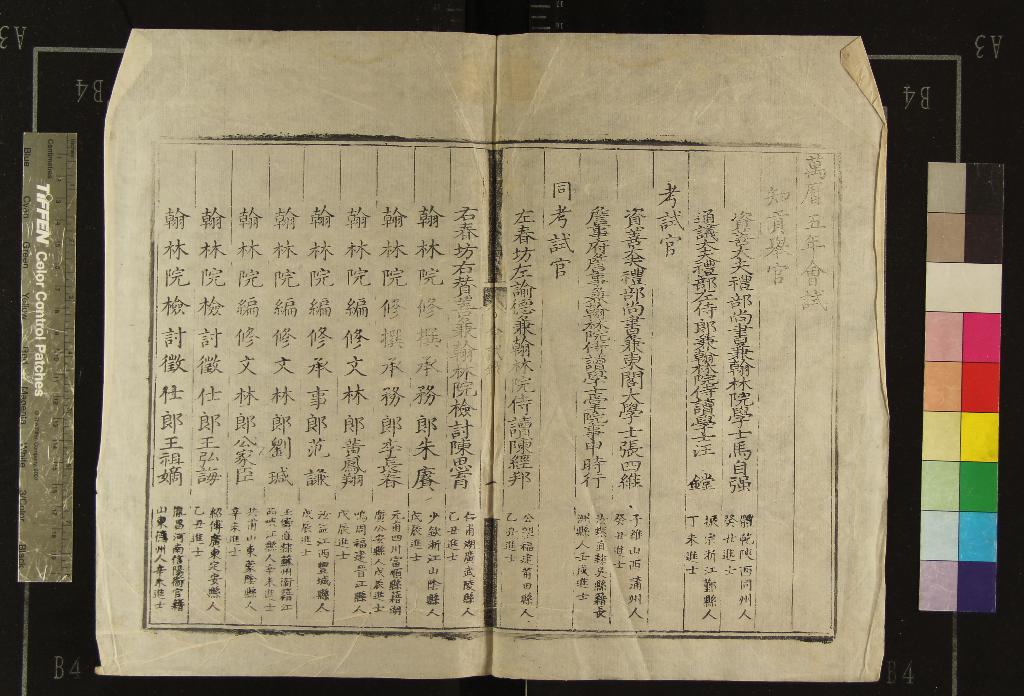 萬曆五年會試
知貢舉官
資善大夫禮部尚書兼翰林院學士馬自强
體乾陝西同州人
癸丑進士
通議大夫禮部左侍郎兼翰林院侍讀學士汪鏜
振宗浙江鄞縣人
丁未進士
考試官
資善大夫禮部尚書兼東閣大學士張四維
子維山西蒲州人
癸丑進士
詹事府詹事兼翰林院侍讀學士掌院事申時行
汝默直隸吳縣籍長
洲縣人壬戌進士
同考試官
左春坊左諭德兼翰林院侍讀陳經邦
公望福建莆田縣人
乙丑進士
右春坊右贊善兼翰林院檢討陳思育
仁甫湖廣武陵縣人
乙丑進士
翰林院修撰承務郎朱賡
少欽浙江山陰縣人
戊辰進士
翰林院修撰承務郎李長春
元甫四川富順縣籍湖
廣公安縣人戊辰進士
翰林院編修文林郎黃鳳翔
鳴周福建晉江縣人
戊辰進士
翰林院編修承事郎范謙
汝益江西豐城縣人
戊辰進士
翰林院編修文林郎劉瑊
玉儔直隸蘇州衛籍江
西峽江縣人辛未進士
翰林院編修文林郎公家臣
共甫山東蒙陰縣人
辛未進士
翰林院檢討徵仕郎王弘誨
紹傳廣東定安縣人
乙丑進士
翰林院檢討徵仕郎王祖嫡
胤昌河南信陽衛官籍
山東人辛未進士
A3
B4
A3
B4
B4
B4
TIFFEN Color Control Patches
Centimetres
Inches
Blue
Cyan
Green
Yellow
Red
Magenta
White
3/Color
Black